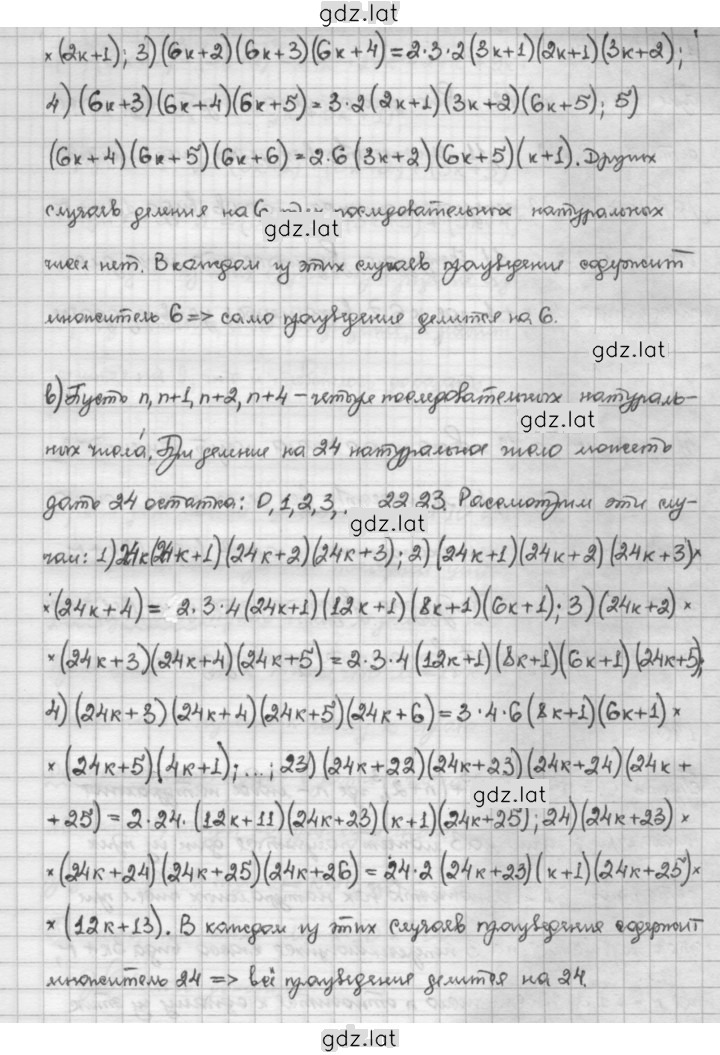 gdz.lat
×(2к+1); 3) (6к+2)(6к+3)(6к+4)=2·3·2(3к+1)(2к+1)(3к+2);
4) (6к+3)(6к+4)(6к+5)=3·2(2к+1)(3к+2)(6к+5); 5)
(6к+4)(6к+5)(6к+6)=2·6(3к+2)(6к+5)(к+1). Других
случаев деления на 6 последовательных натуральных
gdz.lat
чисел нет. В каждом из этих случаев произведение содержит
множитель 6 => само произведение делится на 6.
gdz.lat
в) Пусть n, n+1, n+2, n+4 – четыре последовательных натураль-
gdz.lat
ных числа, При деление на 24 натуральное число можеть
дать 24 остатка: 0, 1, 2, 3, . 22 23. Рассмотрим эти слу-
gdz.lat
чаи: 1) 24к(24к+1)(24к+2)(24к+3); 2) (24к+1)(24к+2)(24к+3)×
×(24к+4) = 2·3·4(24к+1)(12к+1)(8к+1)(6к+1); 3) (24к+2)×
×(24к+3)(24к+4)(24к+5)=2·3·4(12к+1)(8к+1)(6к+1)(24к+5);
4) (24к+3)(24к+4)(24к+5)(24к+6)=3·4·6(8к+1)(6к+1)×
×(24к+5)(4к+1); ...; 23) (24к+22)(24к+23)(24к+24)(24к+
gdz.lat
+25) = 2·24·(12к+11)(24к+23)(к+1)(24к+25); 24) (24к+23)×
×(24к+24)(24к+25)(24к+26) = 24·2(24к+23)(к+1)(24к+25)×
×(12к+13). В каждом из этих случаев произведение содержит
множитель 24 => всё произведение делится на 24.
gdz.lat